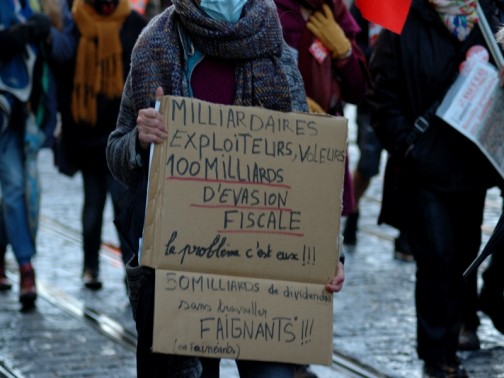 MILLIARDAIRES
EXPLOITEURS, VOLEURS
100 MILLIARDS
D'EVASION
FISCALE
le problème c'est eux !!!
50 MILLIARDS de dividendes
sans travailler
FAIGNANTS* !!!
(ou Fainéants)